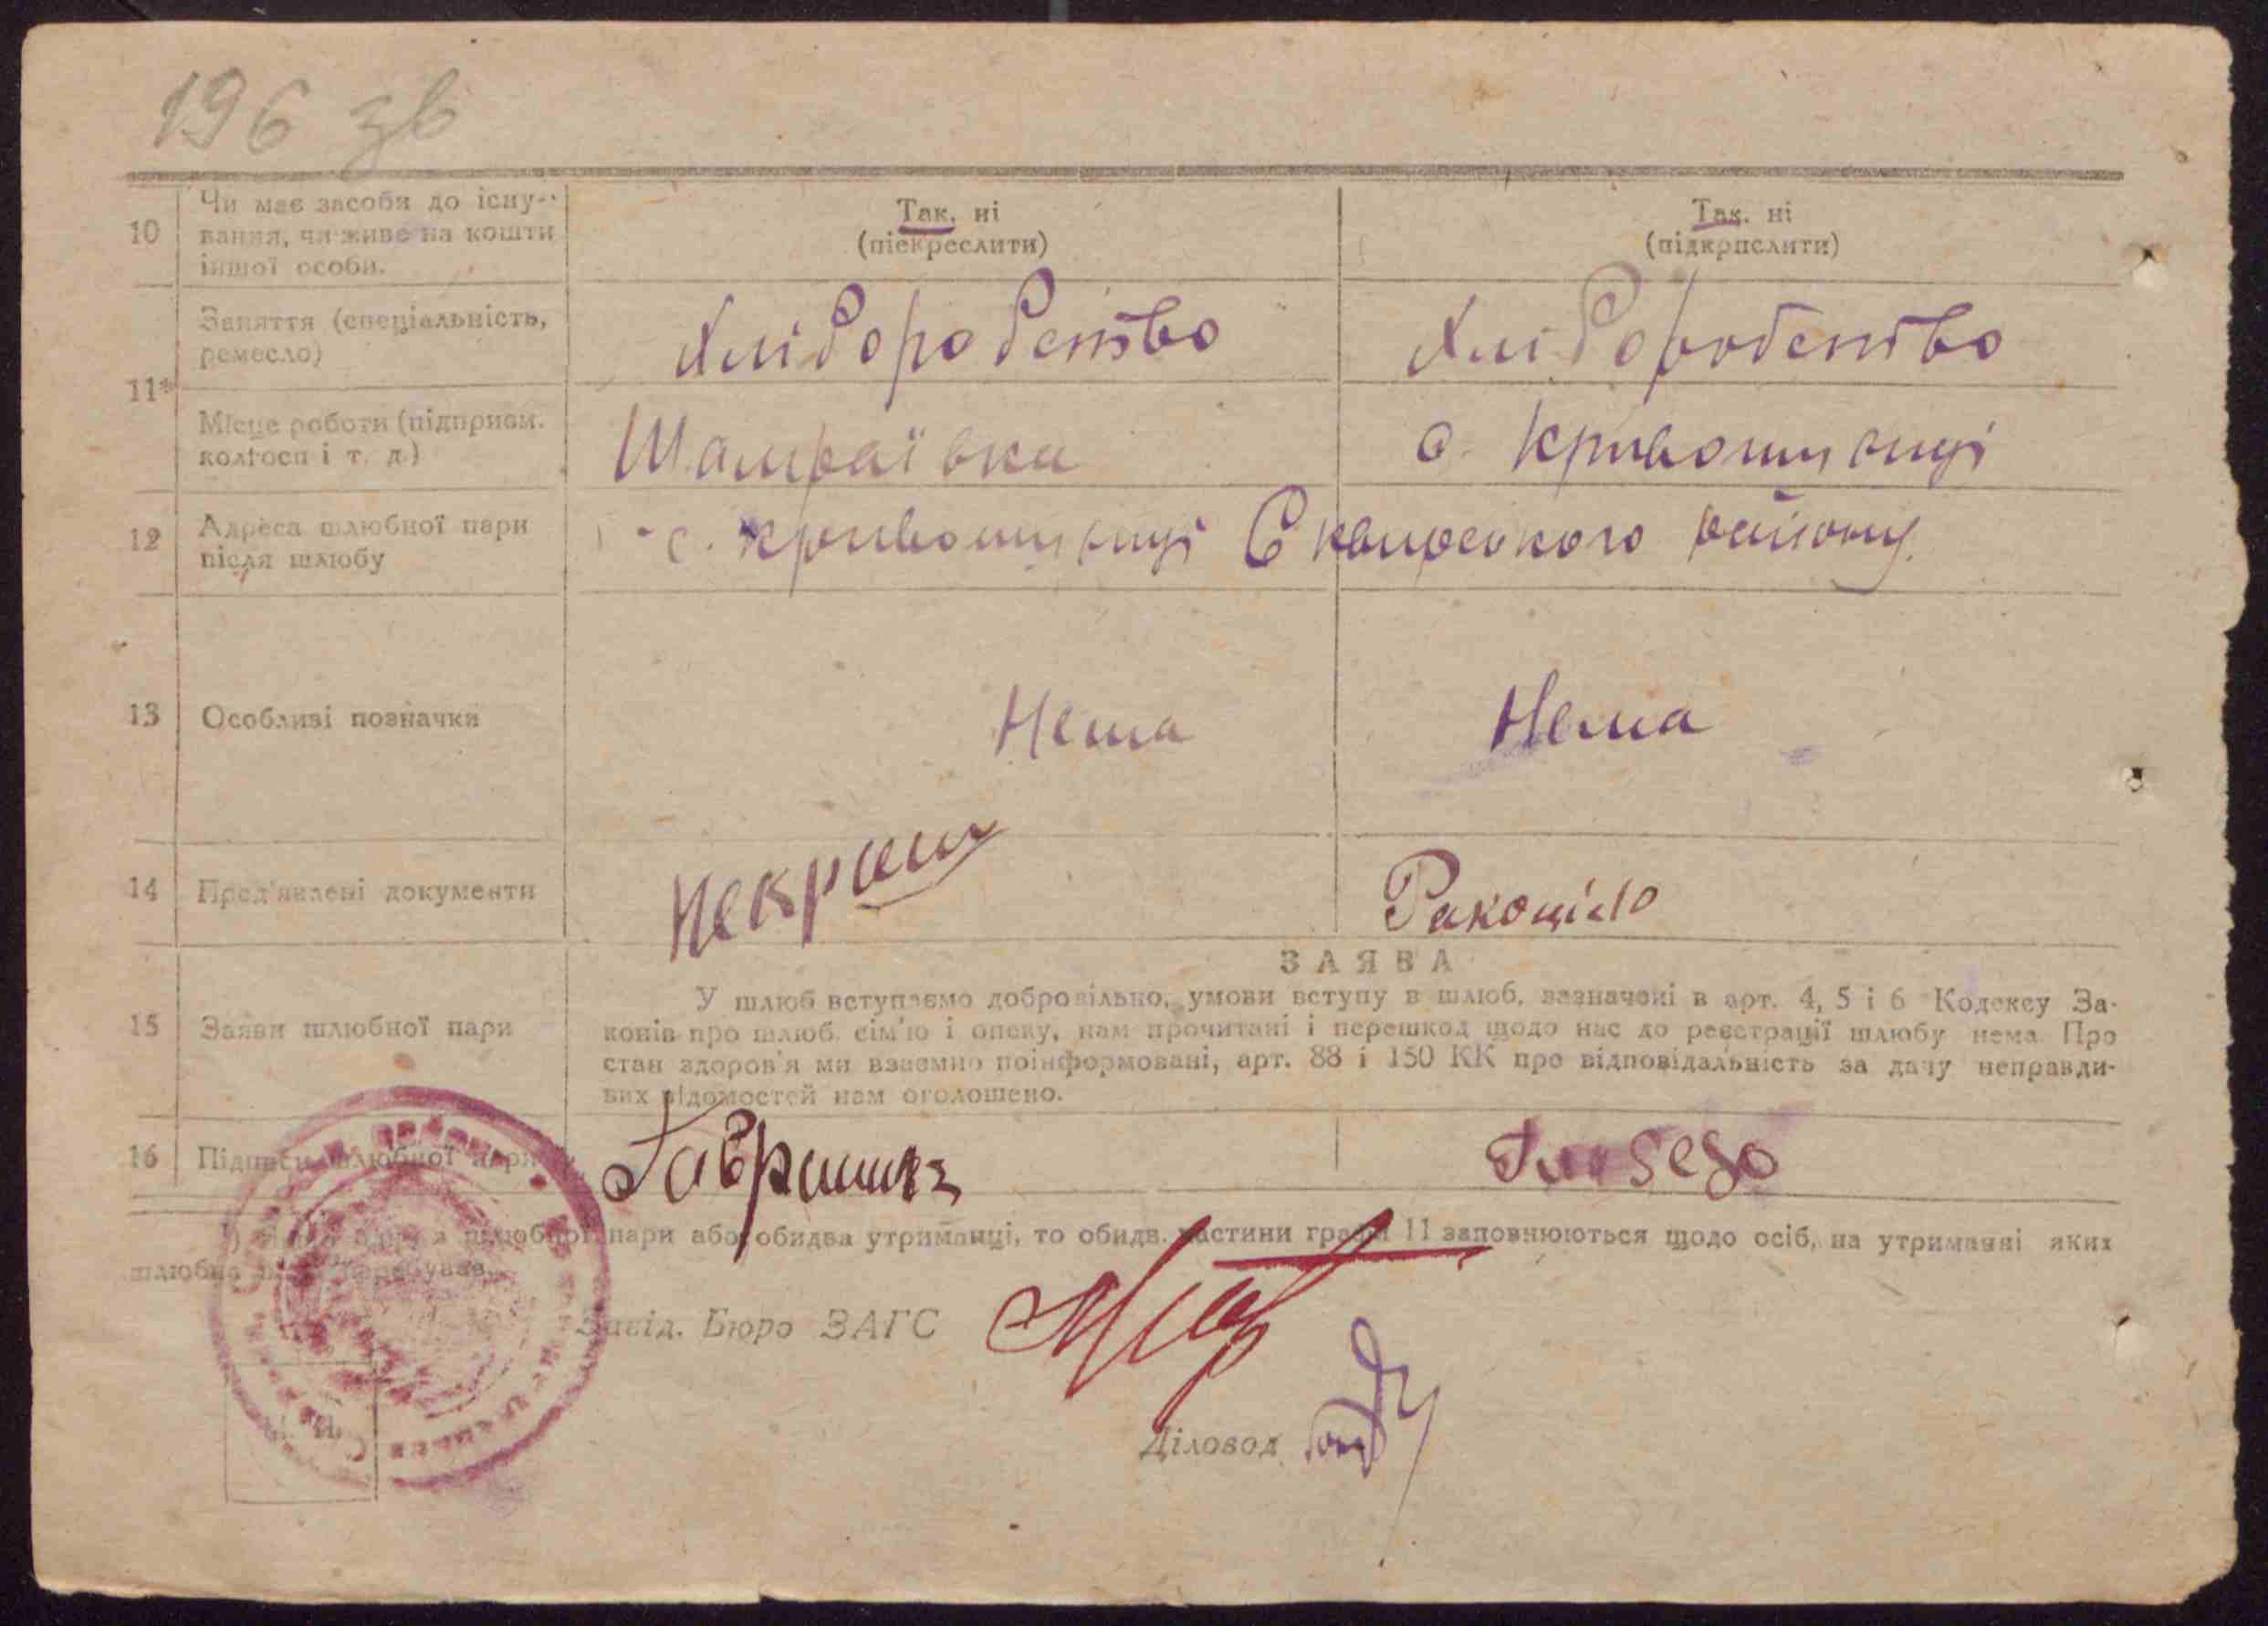 196 зв
10
Чи має засоби до існу-
вання, чи живе на кошти
іншої особи.
Так, ні
(піекреслити)
Так. ні
(підкрпслити)
11*
Заняття (спеціальність,
ремесло)
Хліборобство
Хліборобство
Місце роботи (підприєм.
колгосп і т. д.)
Шамраївка
с. Кривошиїнці
12
Адреса шлюбної пари
після шлюбу
с. Кривошиїнці Сквирського району.
13
Особливі позначки
Нема
Нема
14
Пред'явлені документи
15
Заяви шлюбної пари
ЗАЯВА
У шлюб вступаємо добровільно, умови вступу в шлюб, зазначені в арт. 4, 5 і 6 Кодексу За-
конів про шлюб, сім'ю і опеку, нам прочитані і перешкод щодо нас до реєстрації шлюбу нема. Про
стан здоров'я ми взаємно поінформовані, арт. 88 і 150 КК про відповідальність за дачу неправди-
вих відомостей нам оголошено.
16
Підписи шлюбної пари
пари або обидва утриманці, то обидв. частини графи 11 заповнюються щодо осіб, на утриманні яких
Завід. Бюро ЗАГС
Діловод